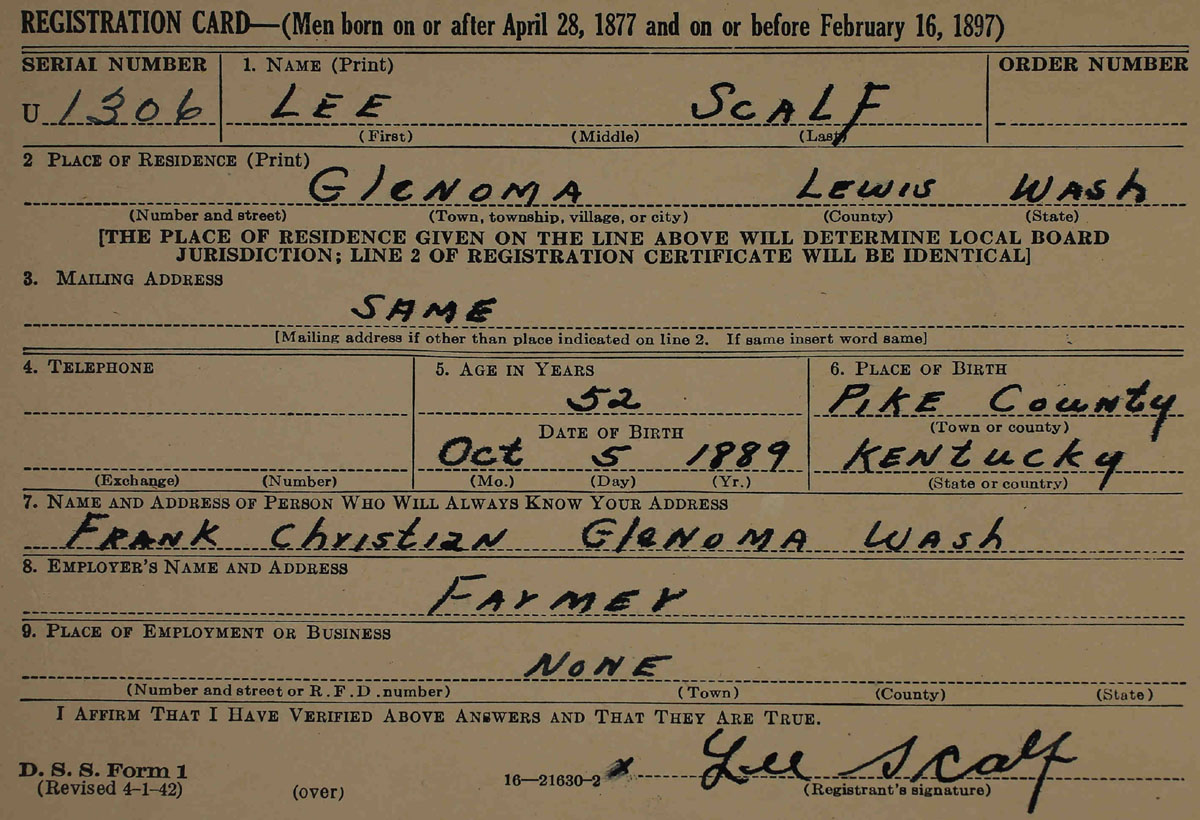 REGISTRATION CARD—(Men born on or after April 28, 1877 and on or before February 16, 1897)
SERIAL NUMBER 1. NAME (Print) ORDER NUMBER
U 1306 LEE SCALF
(First) (Middle) (Last)
2 PLACE OF RESIDENCE (Print)
GleNOMA LEWIS WASh
(Number and street) (Town, township, village, or city) (County) (State)
[THE PLACE OF RESIDENCE GIVEN ON THE LINE ABOVE WILL DETERMINE LOCAL BOARD
JURISDICTION; LINE 2 OF REGISTRATION CERTIFICATE WILL BE IDENTICAL]
3. MAILING ADDRESS
SAME
[Mailing address if other than place indicated on line 2. If same insert word same]
4. TELEPHONE 5. AGE IN YEARS 6. PLACE OF BIRTH
52 PIKE CouNty
DATE OF BIRTH (Town or county)
Oct 5 1889 KENtucky
(Exchange) (Number) (Mo.) (Day) (Yr.) (State or country)
7. NAME AND ADDRESS OF PERSON WHO WILL ALWAYS KNOW YOUR ADDRESS
FRANK ChristiaN GleNOMA WASh
8. EMPLOYER'S NAME AND ADDRESS
FArMEr
9. PLACE OF EMPLOYMENT OR BUSINESS
NONE
(Number and street or R.F.D. number) (Town) (County) (State)
I AFFIRM THAT I HAVE VERIFIED ABOVE ANSWERS AND THAT THEY ARE TRUE.
D. S. S. Form 1
(Revised 4-1-42) (over) 16—21630-2 x Lee Scalf
(Registrant's signature)